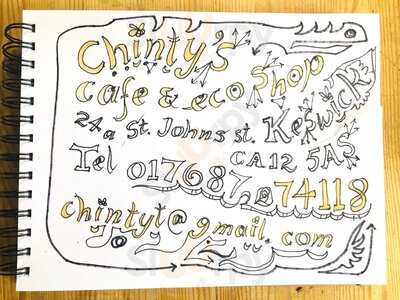 Chinty's
Cafe & eco shop
24a St. Johns st. Keswick
Tel CA12 5AS
017687 74118
chintyt@gmail.com